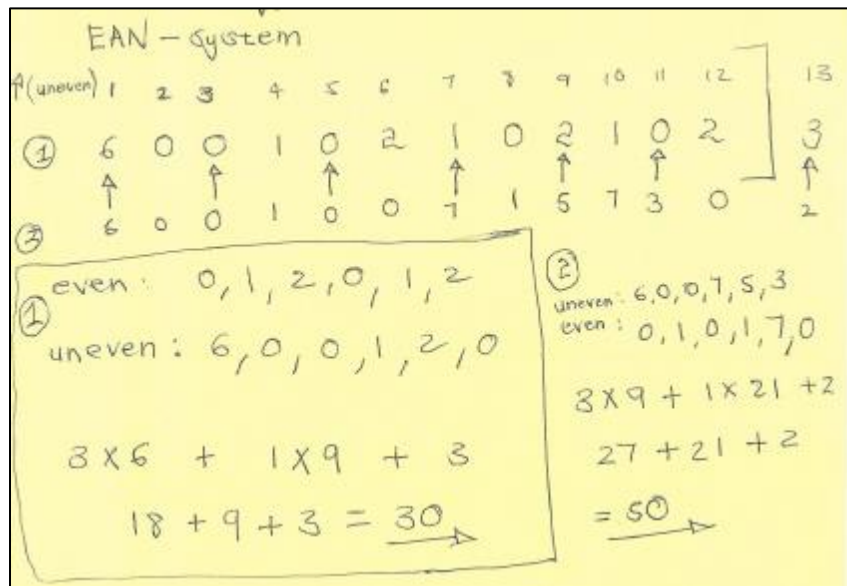 EAN - system
↑(uneven) 1 2 3 4 5 6 7 8 9 10 11 12 13
① 6 0 0 1 0 2 1 0 2 1 0 2 3
↑ ↑ ↑ ↑ ↑ ↑ ↑
③ 6 0 0 1 0 0 7 1 5 7 3 0 2
①
even : 0, 1, 2, 0, 1, 2
uneven : 6, 0, 0, 1, 2, 0
3 x 6 + 1 x 9 + 3
18 + 9 + 3 = 30
②
uneven : 6, 0, 0, 7, 5, 3
even : 0, 1, 0, 1, 7, 0
3 x 9 + 1 x 21 + 2
27 + 21 + 2
= 50